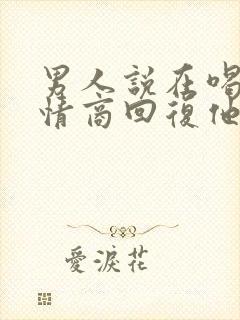 男人說在喝
情商回復他
愛淚花